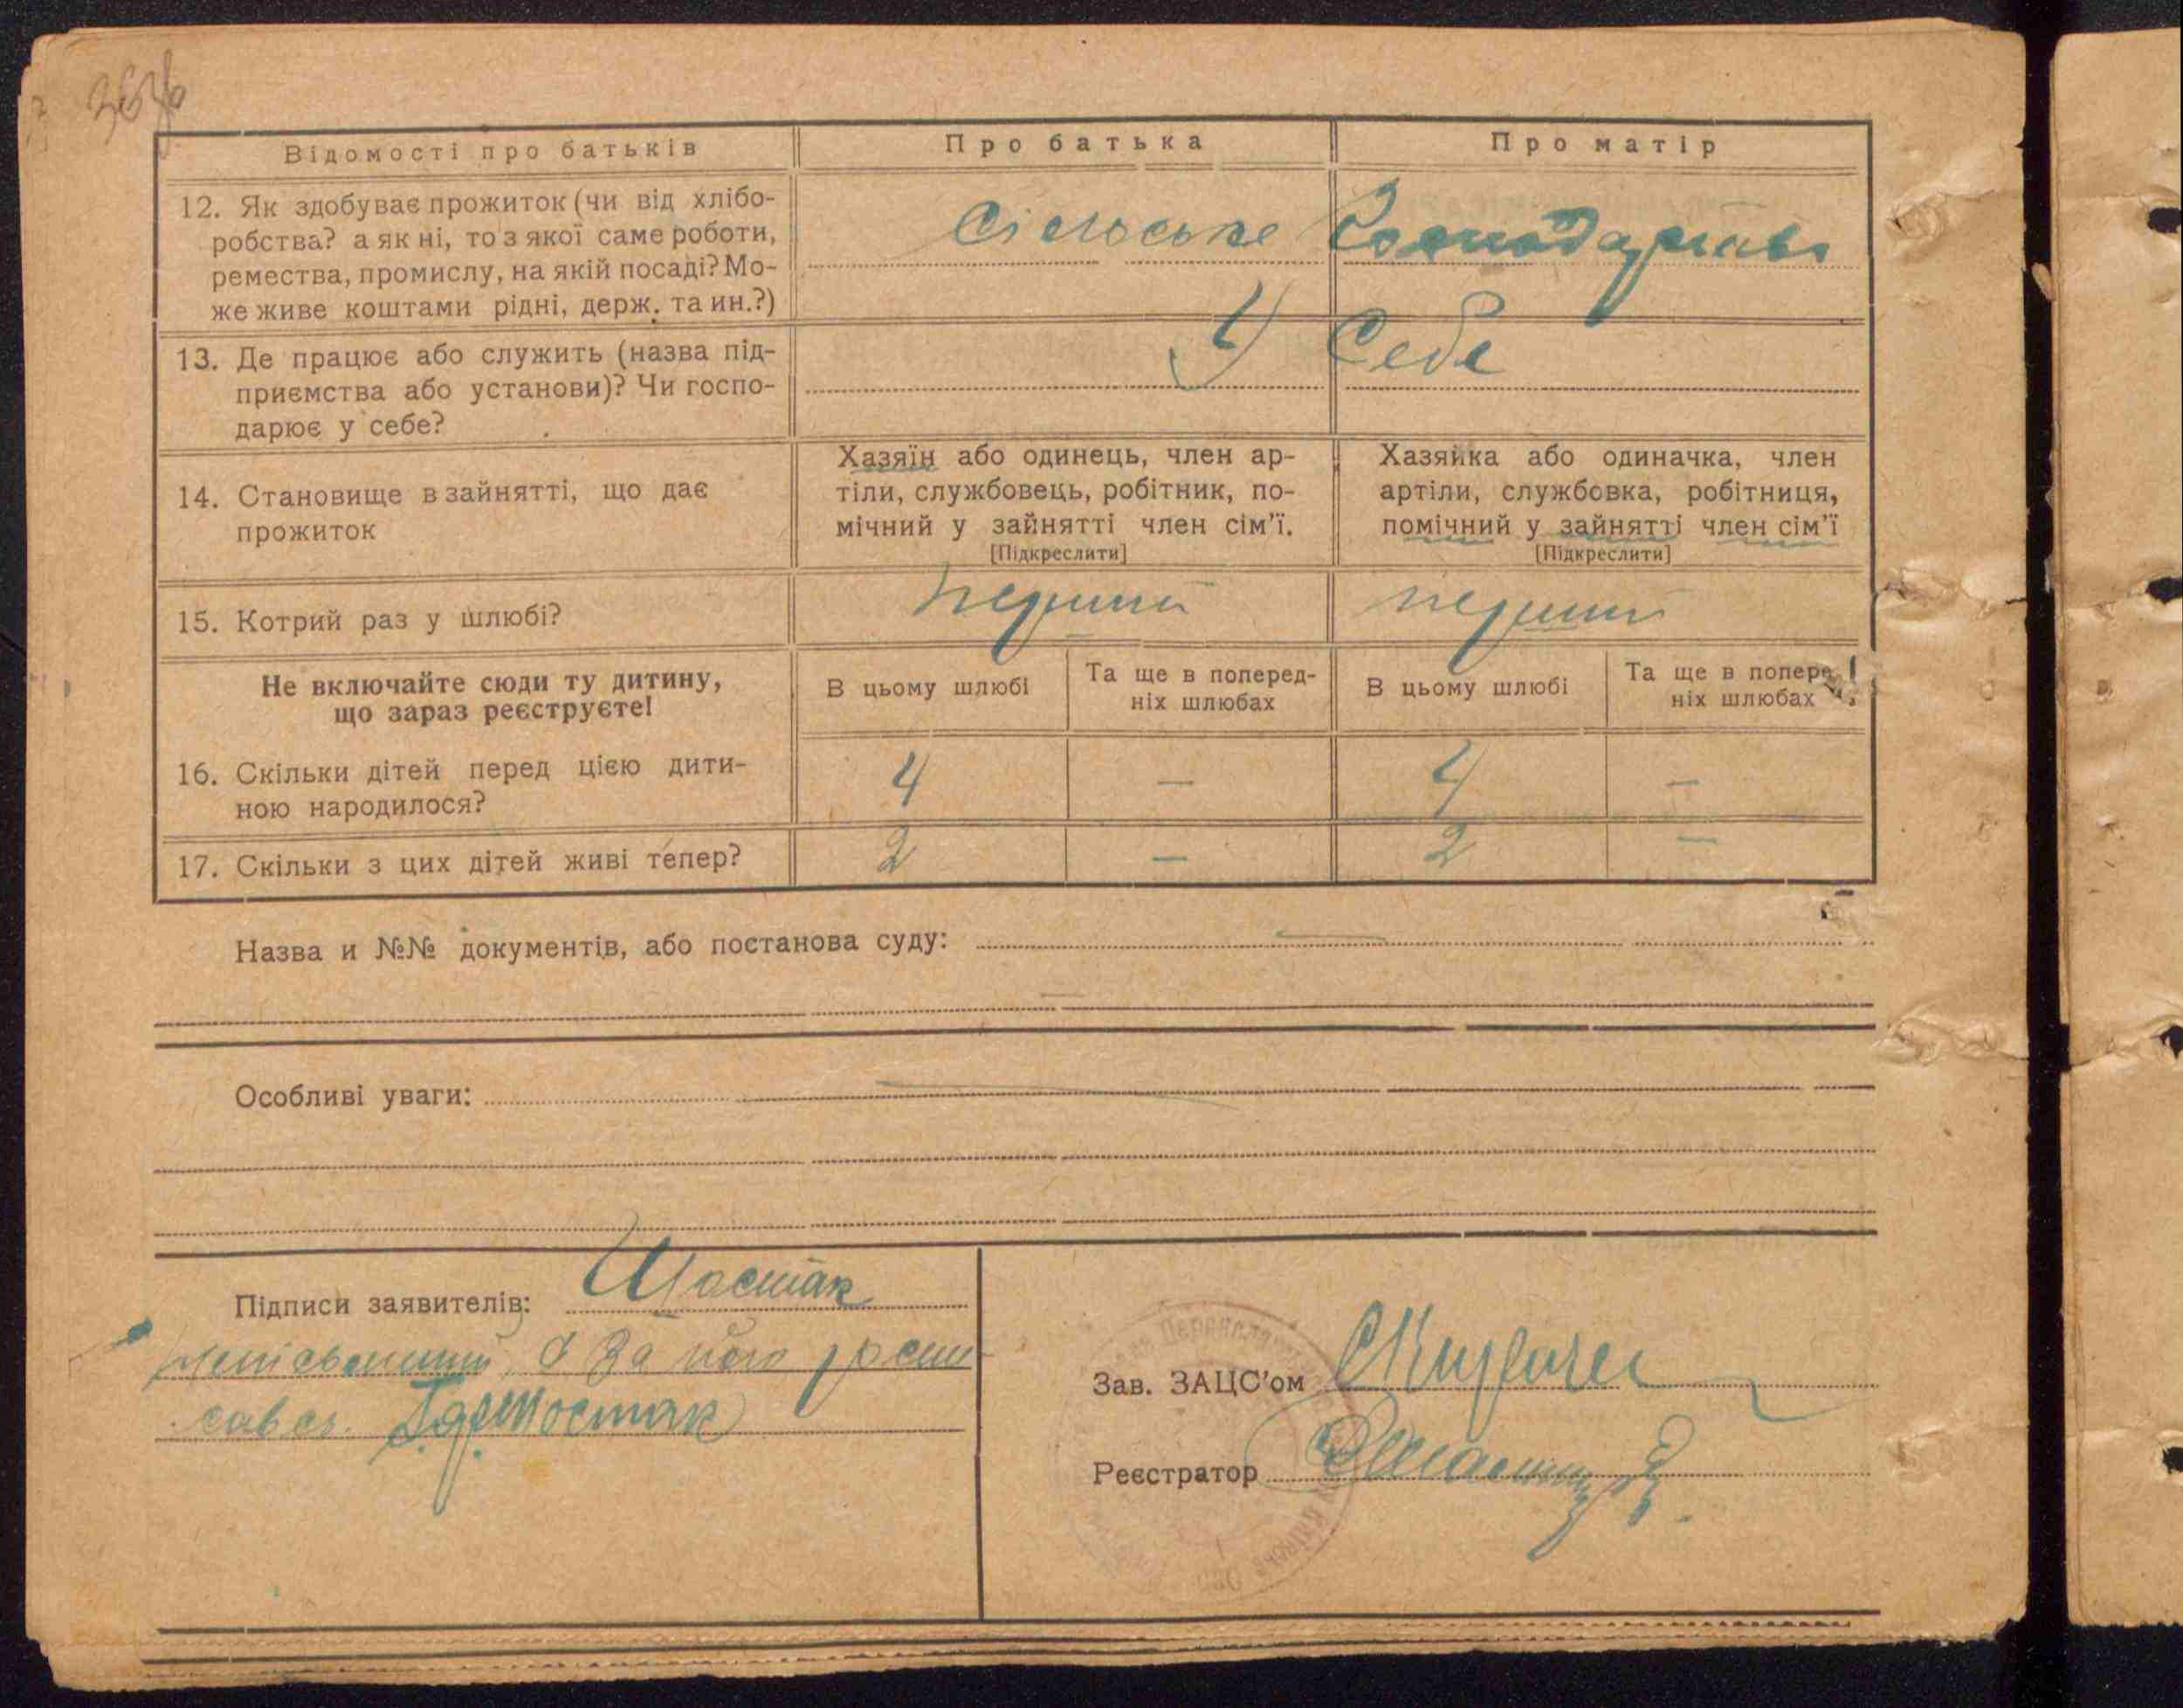 Відомості про батьків
Про батька
Про матір
12. Як здобуває прожиток (чи від хлібо-
робства? а як ні, то з якої саме роботи,
ремества, промислу, на якій посаді? Мо-
же живе коштами рідні, держ. та ин.?)
Сільське Господарство
13. Де працює або служить (назва під-
приємства або установи)? Чи госпо-
дарює у себе?
У Себе
14. Становище в зайнятті, що дає
прожиток
Хазяїн або одинець, член ар-
тіли, службовець, робітник, по-
мічний у зайнятті член сім’ї.
[Підкреслити]
Хазяйка або одиначка, член
артіли, службовка, робітниця,
помічний у зайнятті член сім’ї
[Підкреслити]
15. Котрий раз у шлюбі?
перший
перший
Не включайте сюди ту дитину,
що зараз реєструєте!
В цьому шлюбі
Та ще в поперед-
ніх шлюбах
В цьому шлюбі
Та ще в попере
ніх шлюбах
16. Скільки дітей перед цією дити-
ною народилося?
4 — 4 —
17. Скільки з цих дітей живі тепер?
2 — 2 —
Назва и №№ документів, або постанова суду:
Особливі уваги:
Підписи заявителів: Шостак
За його
Шостак
Зав. ЗАЦС’ом
Реєстратор